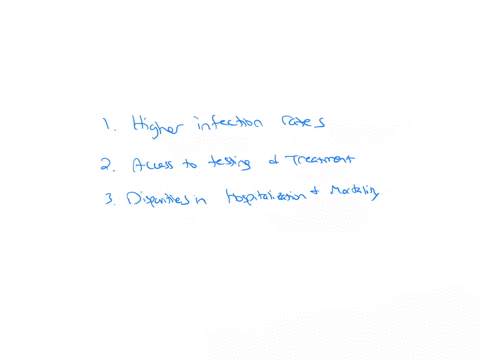 1. Higher infection rates
2. Access to testing & Treatment
3. Disparities in Hospitalization & Mortality